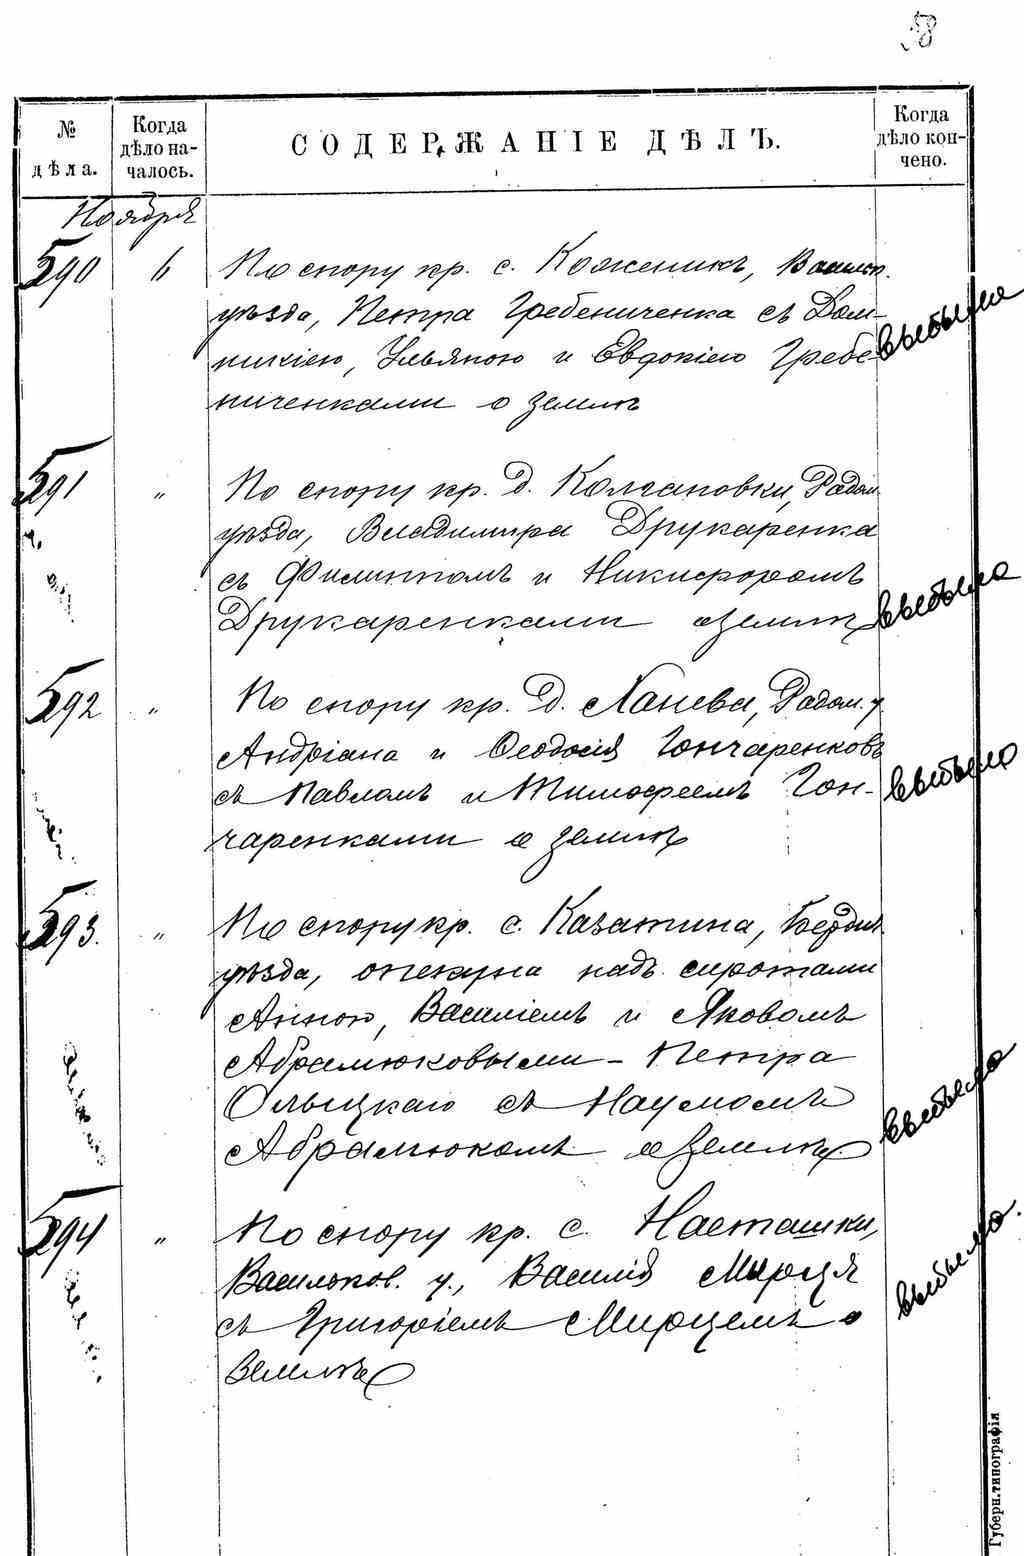 58
№ дѣла.
Когда дѣло началось.
СОДЕРЖАНІЕ ДѢЛЪ.
Когда дѣло кончено.
Ноября
590 6 По спору кр. с. Кожсеникъ, Васильк.
уѣзда, Петра Гребениченка съ Дом-
никіею, Ульяною и Евдокіею Гребе-
ниченками о землѣ
выбыло
591 " По спору кр. д. Колгановки, Радом.
уѣзда, Владимира Друкаренка
съ Филиппомъ и Никифоромъ
Друкаренками о землѣ
выбыло
592 " По спору кр. д. Ханева, Радом. у.
Андріана и Ѳеодосія Гончаренковъ
съ Павломъ и Тимофеемъ Гон-
чаренками о землѣ
выбыло
593. " По спору кр. с. Казатина, Бердич.
уѣзда, опекуна надъ сиротами
Анною, Василіемъ и Яковомъ
Абрамюковыми - Петра
Ольшскаго съ Наумомъ
Абрамюкомъ о землѣ
выбыло
594 " По спору кр. с. Насташки,
Васильков. у., Василія Мирця
съ Григоріемъ Мирцемъ о
землѣ
выбыло.
Губерн. типографія